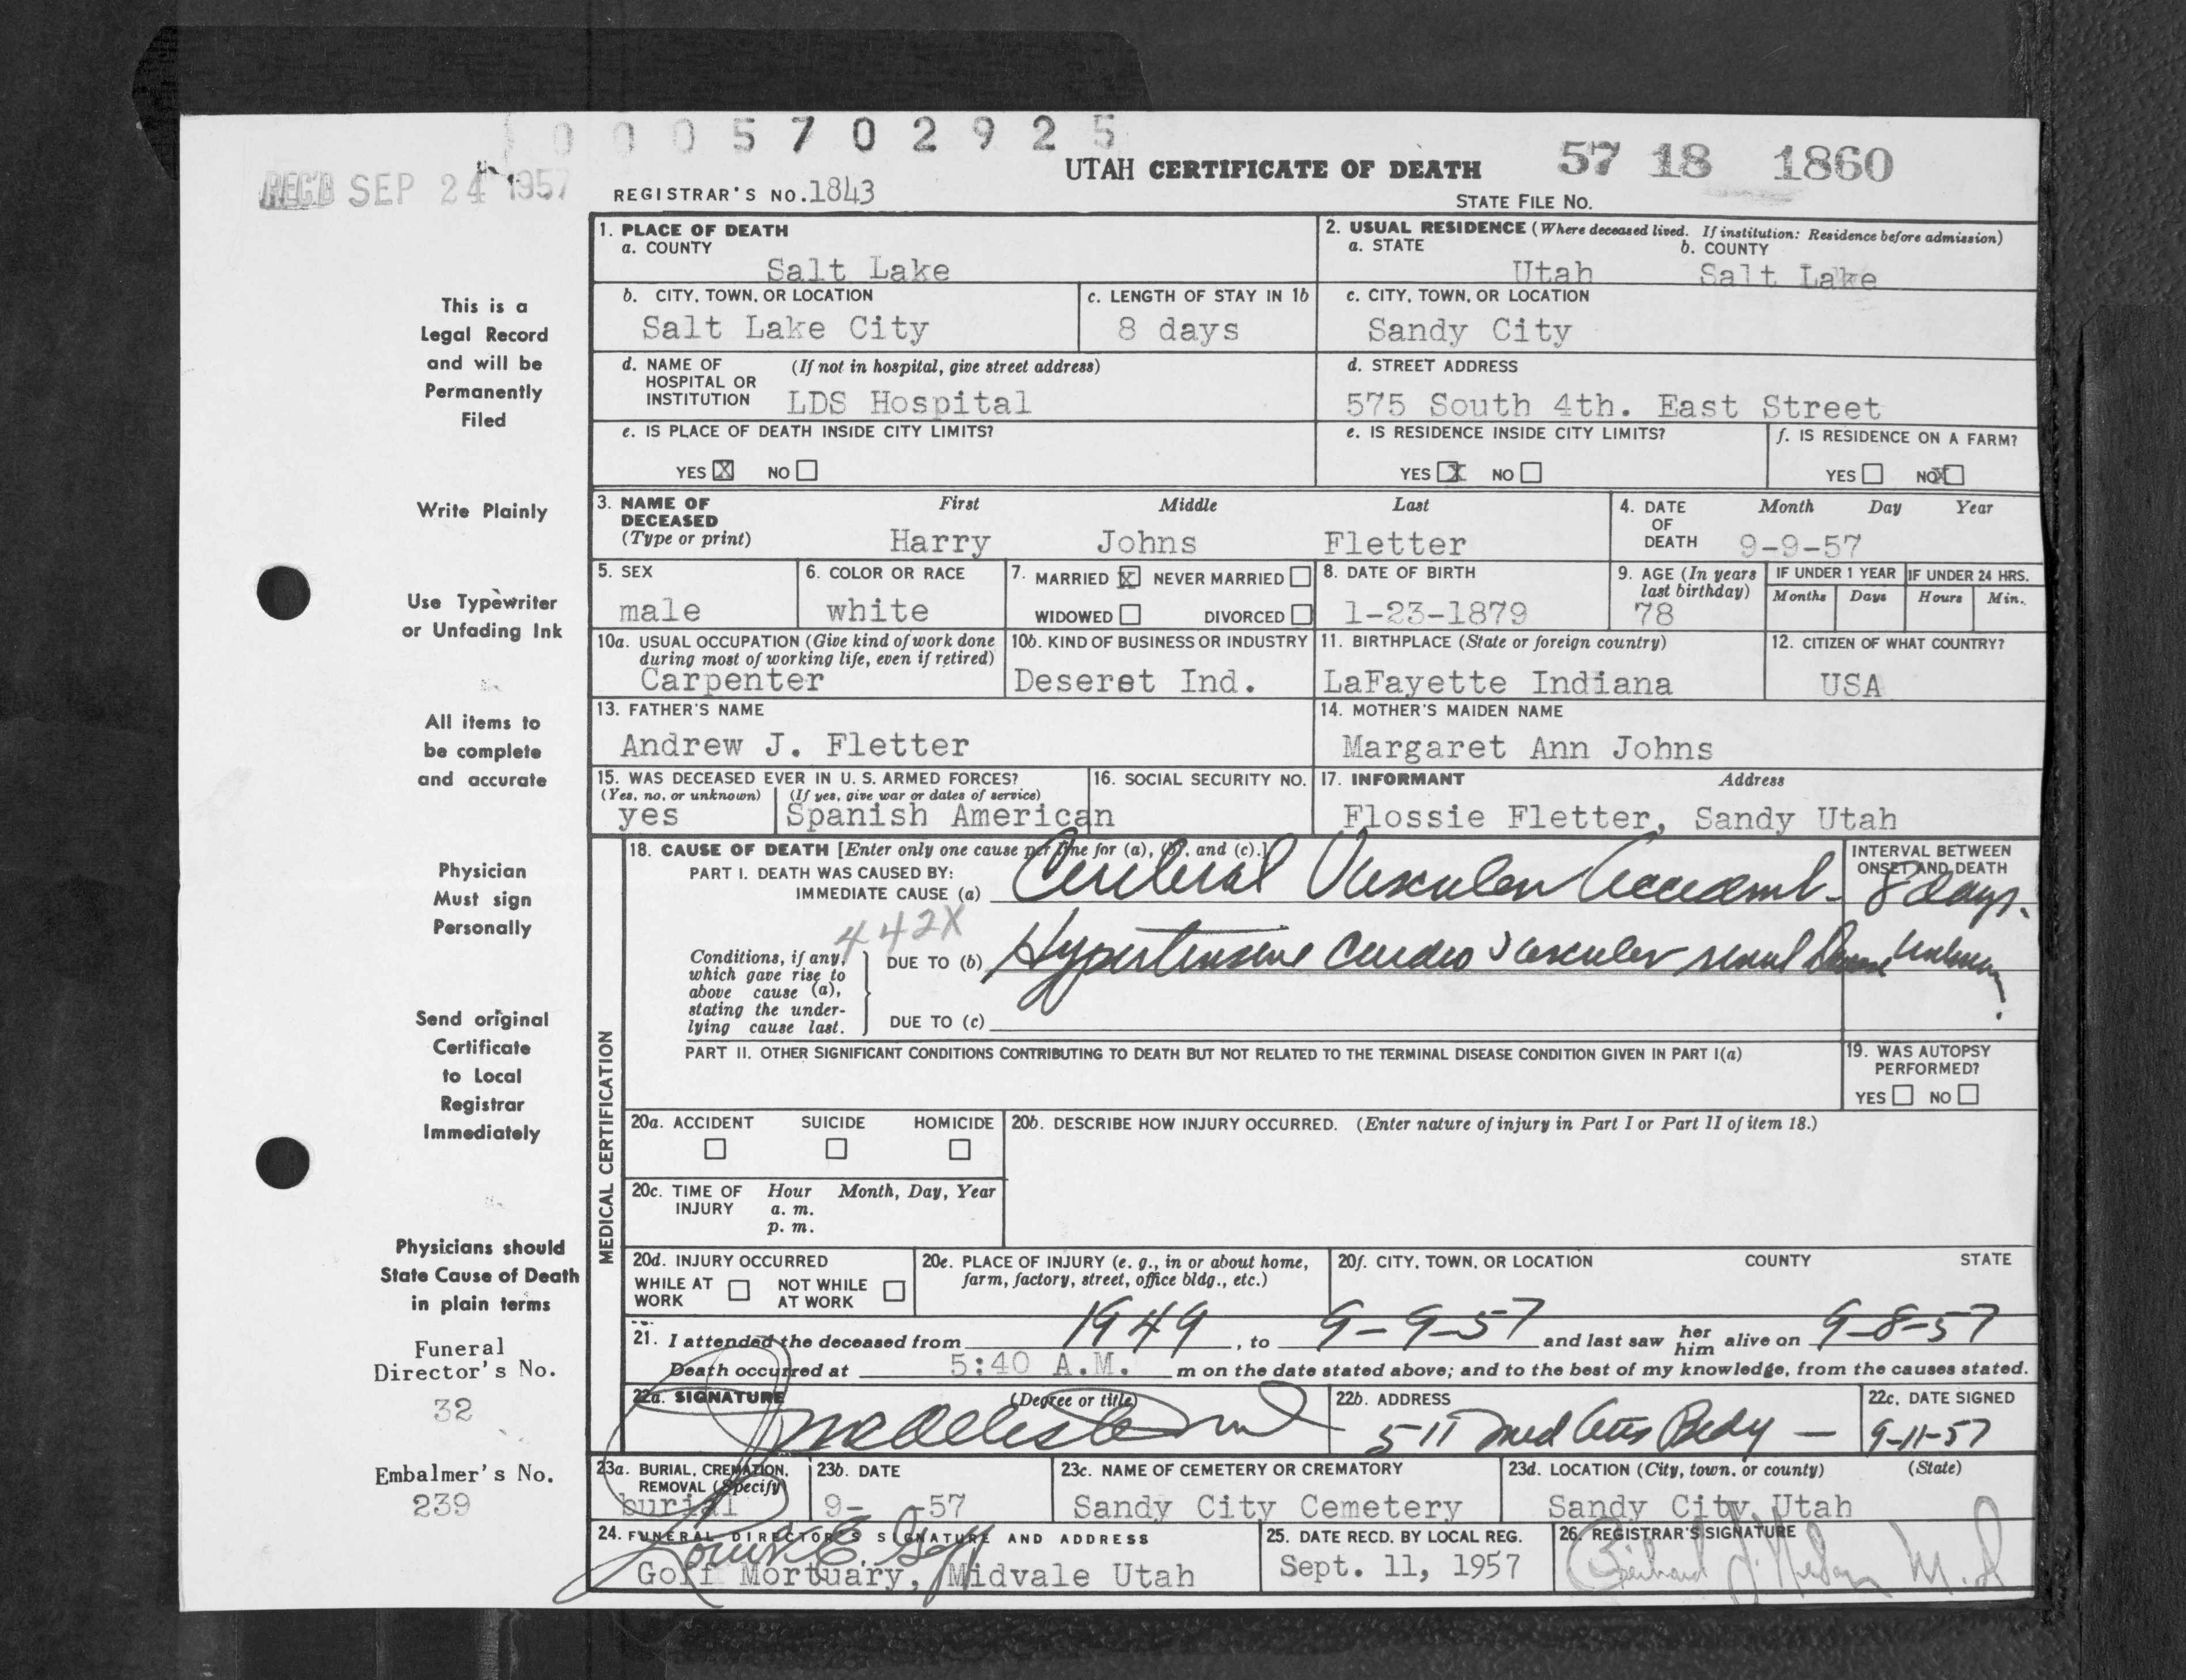 0005702925
REC'D SEP 24 1957
REGISTRAR'S NO. 1843
UTAH CERTIFICATE OF DEATH
57 18 1860
STATE FILE NO.
1. PLACE OF DEATH
a. COUNTY
Salt Lake
2. USUAL RESIDENCE (Where deceased lived. If institution: Residence before admission)
a. STATE b. COUNTY
Utah Salt Lake
b. CITY, TOWN, OR LOCATION
Salt Lake City
c. LENGTH OF STAY IN 1b
8 days
c. CITY, TOWN, OR LOCATION
Sandy City
d. NAME OF (If not in hospital, give street address)
HOSPITAL OR
INSTITUTION LDS Hospital
d. STREET ADDRESS
575 South 4th. East Street
e. IS PLACE OF DEATH INSIDE CITY LIMITS?
YES X NO
e. IS RESIDENCE INSIDE CITY LIMITS?
YES X NO
f. IS RESIDENCE ON A FARM?
YES NO X
3. NAME OF First Middle Last
DECEASED
(Type or print) Harry Johns Fletter
4. DATE Month Day Year
OF
DEATH 9-9-57
5. SEX
male
6. COLOR OR RACE
white
7. MARRIED X NEVER MARRIED
WIDOWED DIVORCED
8. DATE OF BIRTH
1-23-1879
9. AGE (In years
last birthday)
78
IF UNDER 1 YEAR IF UNDER 24 HRS.
Months Days Hours Min.
10a. USUAL OCCUPATION (Give kind of work done
during most of working life, even if retired)
Carpenter
10b. KIND OF BUSINESS OR INDUSTRY
Deseret Ind.
11. BIRTHPLACE (State or foreign country)
LaFayette Indiana
12. CITIZEN OF WHAT COUNTRY?
USA
13. FATHER'S NAME
Andrew J. Fletter
14. MOTHER'S MAIDEN NAME
Margaret Ann Johns
15. WAS DECEASED EVER IN U. S. ARMED FORCES?
(Yes, no, or unknown) (If yes, give war or dates of service)
yes Spanish American
16. SOCIAL SECURITY NO.
17. INFORMANT Address
Flossie Fletter, Sandy Utah
MEDICAL CERTIFICATION
18. CAUSE OF DEATH [Enter only one cause per line for (a), (b), and (c).]
PART I. DEATH WAS CAUSED BY:
IMMEDIATE CAUSE (a) Cerebral Vascular Accident
INTERVAL BETWEEN
ONSET AND DEATH
8 days.
442X
Conditions, if any,
which gave rise to
above cause (a),
stating the under-
lying cause last.
DUE TO (b) Hypertensive Cardio Vascular renal disease unknown
DUE TO (c)
PART II. OTHER SIGNIFICANT CONDITIONS CONTRIBUTING TO DEATH BUT NOT RELATED TO THE TERMINAL DISEASE CONDITION GIVEN IN PART I(a)
19. WAS AUTOPSY
PERFORMED?
YES NO
20a. ACCIDENT SUICIDE HOMICIDE
20b. DESCRIBE HOW INJURY OCCURRED. (Enter nature of injury in Part I or Part II of item 18.)
20c. TIME OF Hour Month, Day, Year
INJURY a. m.
p. m.
20d. INJURY OCCURRED
WHILE AT NOT WHILE
WORK AT WORK
20e. PLACE OF INJURY (e. g., in or about home,
farm, factory, street, office bldg., etc.)
20f. CITY, TOWN, OR LOCATION COUNTY STATE
21. I attended the deceased from 1949, to 9-9-57 and last saw her him alive on 9-8-57
Death occurred at 5:40 A.M. m on the date stated above; and to the best of my knowledge, from the causes stated.
22a. SIGNATURE (Degree or title)
22b. ADDRESS
511 Med
22c. DATE SIGNED
9-11-57
23a. BURIAL, CREMATION,
REMOVAL (Specify)
burial
23b. DATE
9- -57
23c. NAME OF CEMETERY OR CREMATORY
Sandy City Cemetery
23d. LOCATION (City, town, or county) (State)
Sandy City, Utah
24. FUNERAL DIRECTOR'S SIGNATURE AND ADDRESS
Goff Mortuary, Midvale Utah
25. DATE RECD. BY LOCAL REG.
Sept. 11, 1957
26. REGISTRAR'S SIGNATURE
M.D.
This is a
Legal Record
and will be
Permanently
Filed
Write Plainly
Use Typewriter
or Unfading Ink
All items to
be complete
and accurate
Physician
Must sign
Personally
Send original
Certificate
to Local
Registrar
Immediately
Physicians should
State Cause of Death
in plain terms
Funeral
Director's No.
32
Embalmer's No.
239